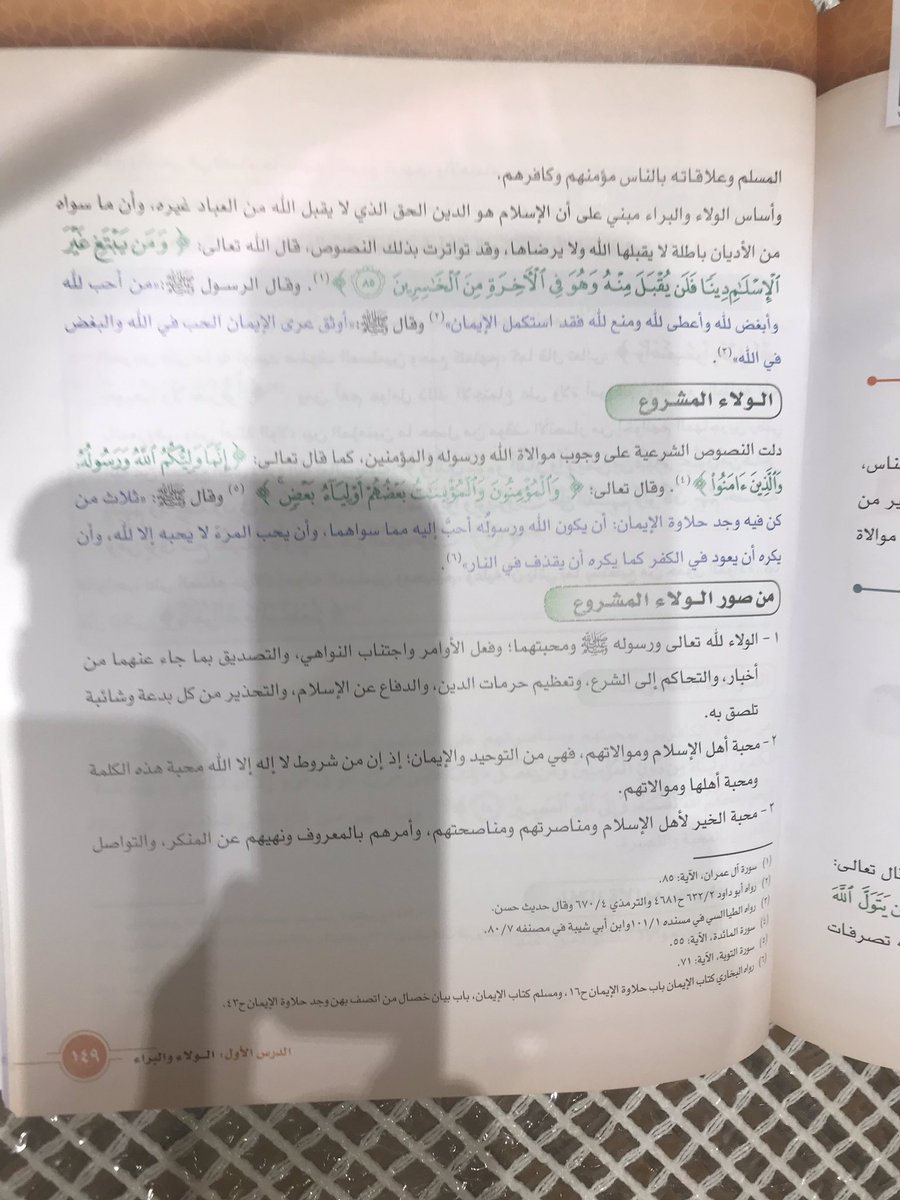 المسلم وعلاقاته بالناس مؤمنهم وكافرهم.
وأساس الولاء والبراء مبني على أن الإسلام هو الدين الحق الذي لا يقبل الله من العباد غيره، وأن ما سواه
من الأديان باطلة لا يقبلها الله ولا يرضاها، وقد تواترت بذلك النصوص، قال الله تعالى: ﴿ وَمَن يَبْتَغِ غَيْرَ
ٱلْإِسْلَٰمِ دِينًا فَلَن يُقْبَلَ مِنْهُ وَهُوَ فِى ٱلْأَخِرَةِ مِنَ ٱلْخَٰسِرِينَ ٨٥ ﴾(١). وقال الرسول ﷺ:«من أحب لله
وأبغض لله وأعطى لله ومنع لله فقد استكمل الإيمان»(٢) وقال ﷺ:«أوثق عرى الإيمان الحب في الله والبغض
في الله»(٣).
الولاء المشروع
دلت النصوص الشرعية على وجوب موالاة الله ورسوله والمؤمنين، كما قال تعالى: ﴿ إِنَّمَا وَلِيُّكُمُ ٱللَّهُ وَرَسُولُهُۥ
وَٱلَّذِينَ ءَامَنُوا۟ ﴾(٤). وقال تعالى: ﴿ وَٱلْمُؤْمِنُونَ وَٱلْمُؤْمِنَٰتُ بَعْضُهُمْ أَوْلِيَآءُ بَعْضٍ ﴾(٥) وقال ﷺ: «ثلاث من
كن فيه وجد حلاوة الإيمان: أن يكون الله ورسولُه أحبَّ إليه مما سواهما، وأن يحب المرءَ لا يحبه إلا لله، وأن
يكره أن يعود في الكفر كما يكره أن يقذف في النار»(٦).
من صور الولاء المشروع
١- الولاء لله تعالى ورسوله ﷺ ومحبتهما؛ وفعل الأوامر واجتناب النواهي، والتصديق بما جاء عنهما من
أخبار، والتحاكم إلى الشرع، وتعظيم حرمات الدين، والدفاع عن الإسلام، والتحذير من كل بدعة وشائبة
تلصق به.
٢- محبة أهل الإسلام وموالاتهم، فهي من التوحيد والإيمان؛ إذ إن من شروط لا إله إلا الله محبة هذه الكلمة
ومحبة أهلها وموالاتهم.
٣- محبة الخير لأهل الإسلام ومناصرتهم ومناصحتهم، وأمرهم بالمعروف ونهيهم عن المنكر، والتواصل
(١) سورة آل عمران، الآية: ٨٥.
(٢) رواه أبو داود ٦٣٢/٢ ح٤٦٨١ والترمذي ٦٧٠/٤ وقال حديث حسن.
(٣) رواه الطيالسي في مسنده ١٠١/١ وابن أبي شيبة في مصنفه ٨٠/٧.
(٤) سورة المائدة، الآية: ٥٥.
(٥) سورة التوبة، الآية: ٧١.
(٦) رواه البخاري كتاب الإيمان باب حلاوة الإيمان ح١٦، ومسلم كتاب الإيمان، باب بيان خصال من اتصف بهن وجد حلاوة الإيمان ح٤٣.
الدرس الأول: الولاء والبراء
١٤٩
ناس،
ير من
موالاة
ال تعالى:
يَتَوَلَّ ٱللَّهَ
تصرفات